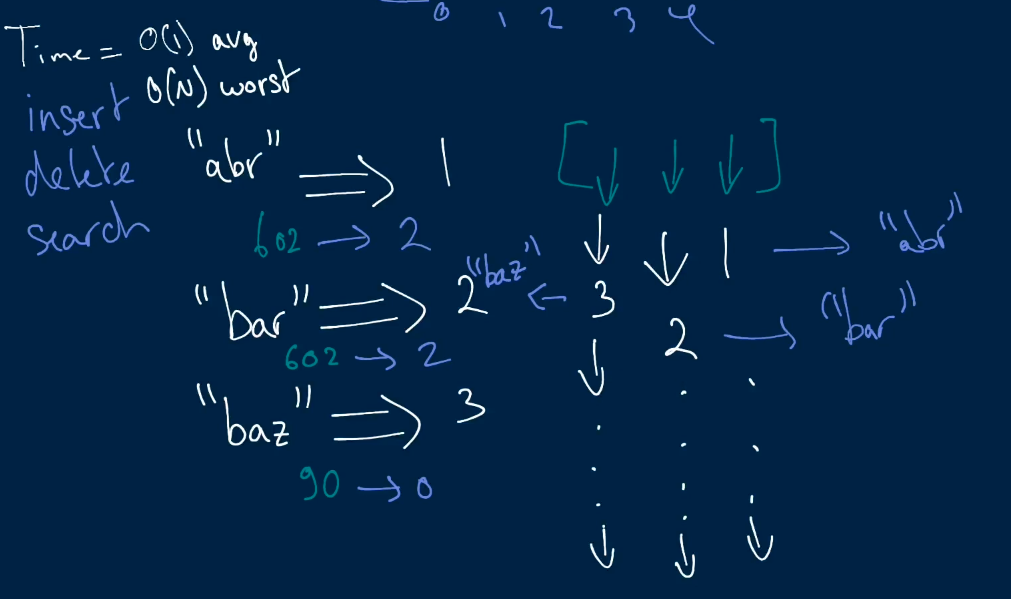 0 1 2 3 4
Time = O(1) avg
O(N) worst
insert
delete
search
"abr" ⇒ 1
602 → 2
"bar" ⇒ 2
602 → 2
"baz" ⇒ 3
90 → 0
[↓ ↓ ↓]
↓ ↓ 1 → "abr"
"baz" ← 3
2 → "bar"